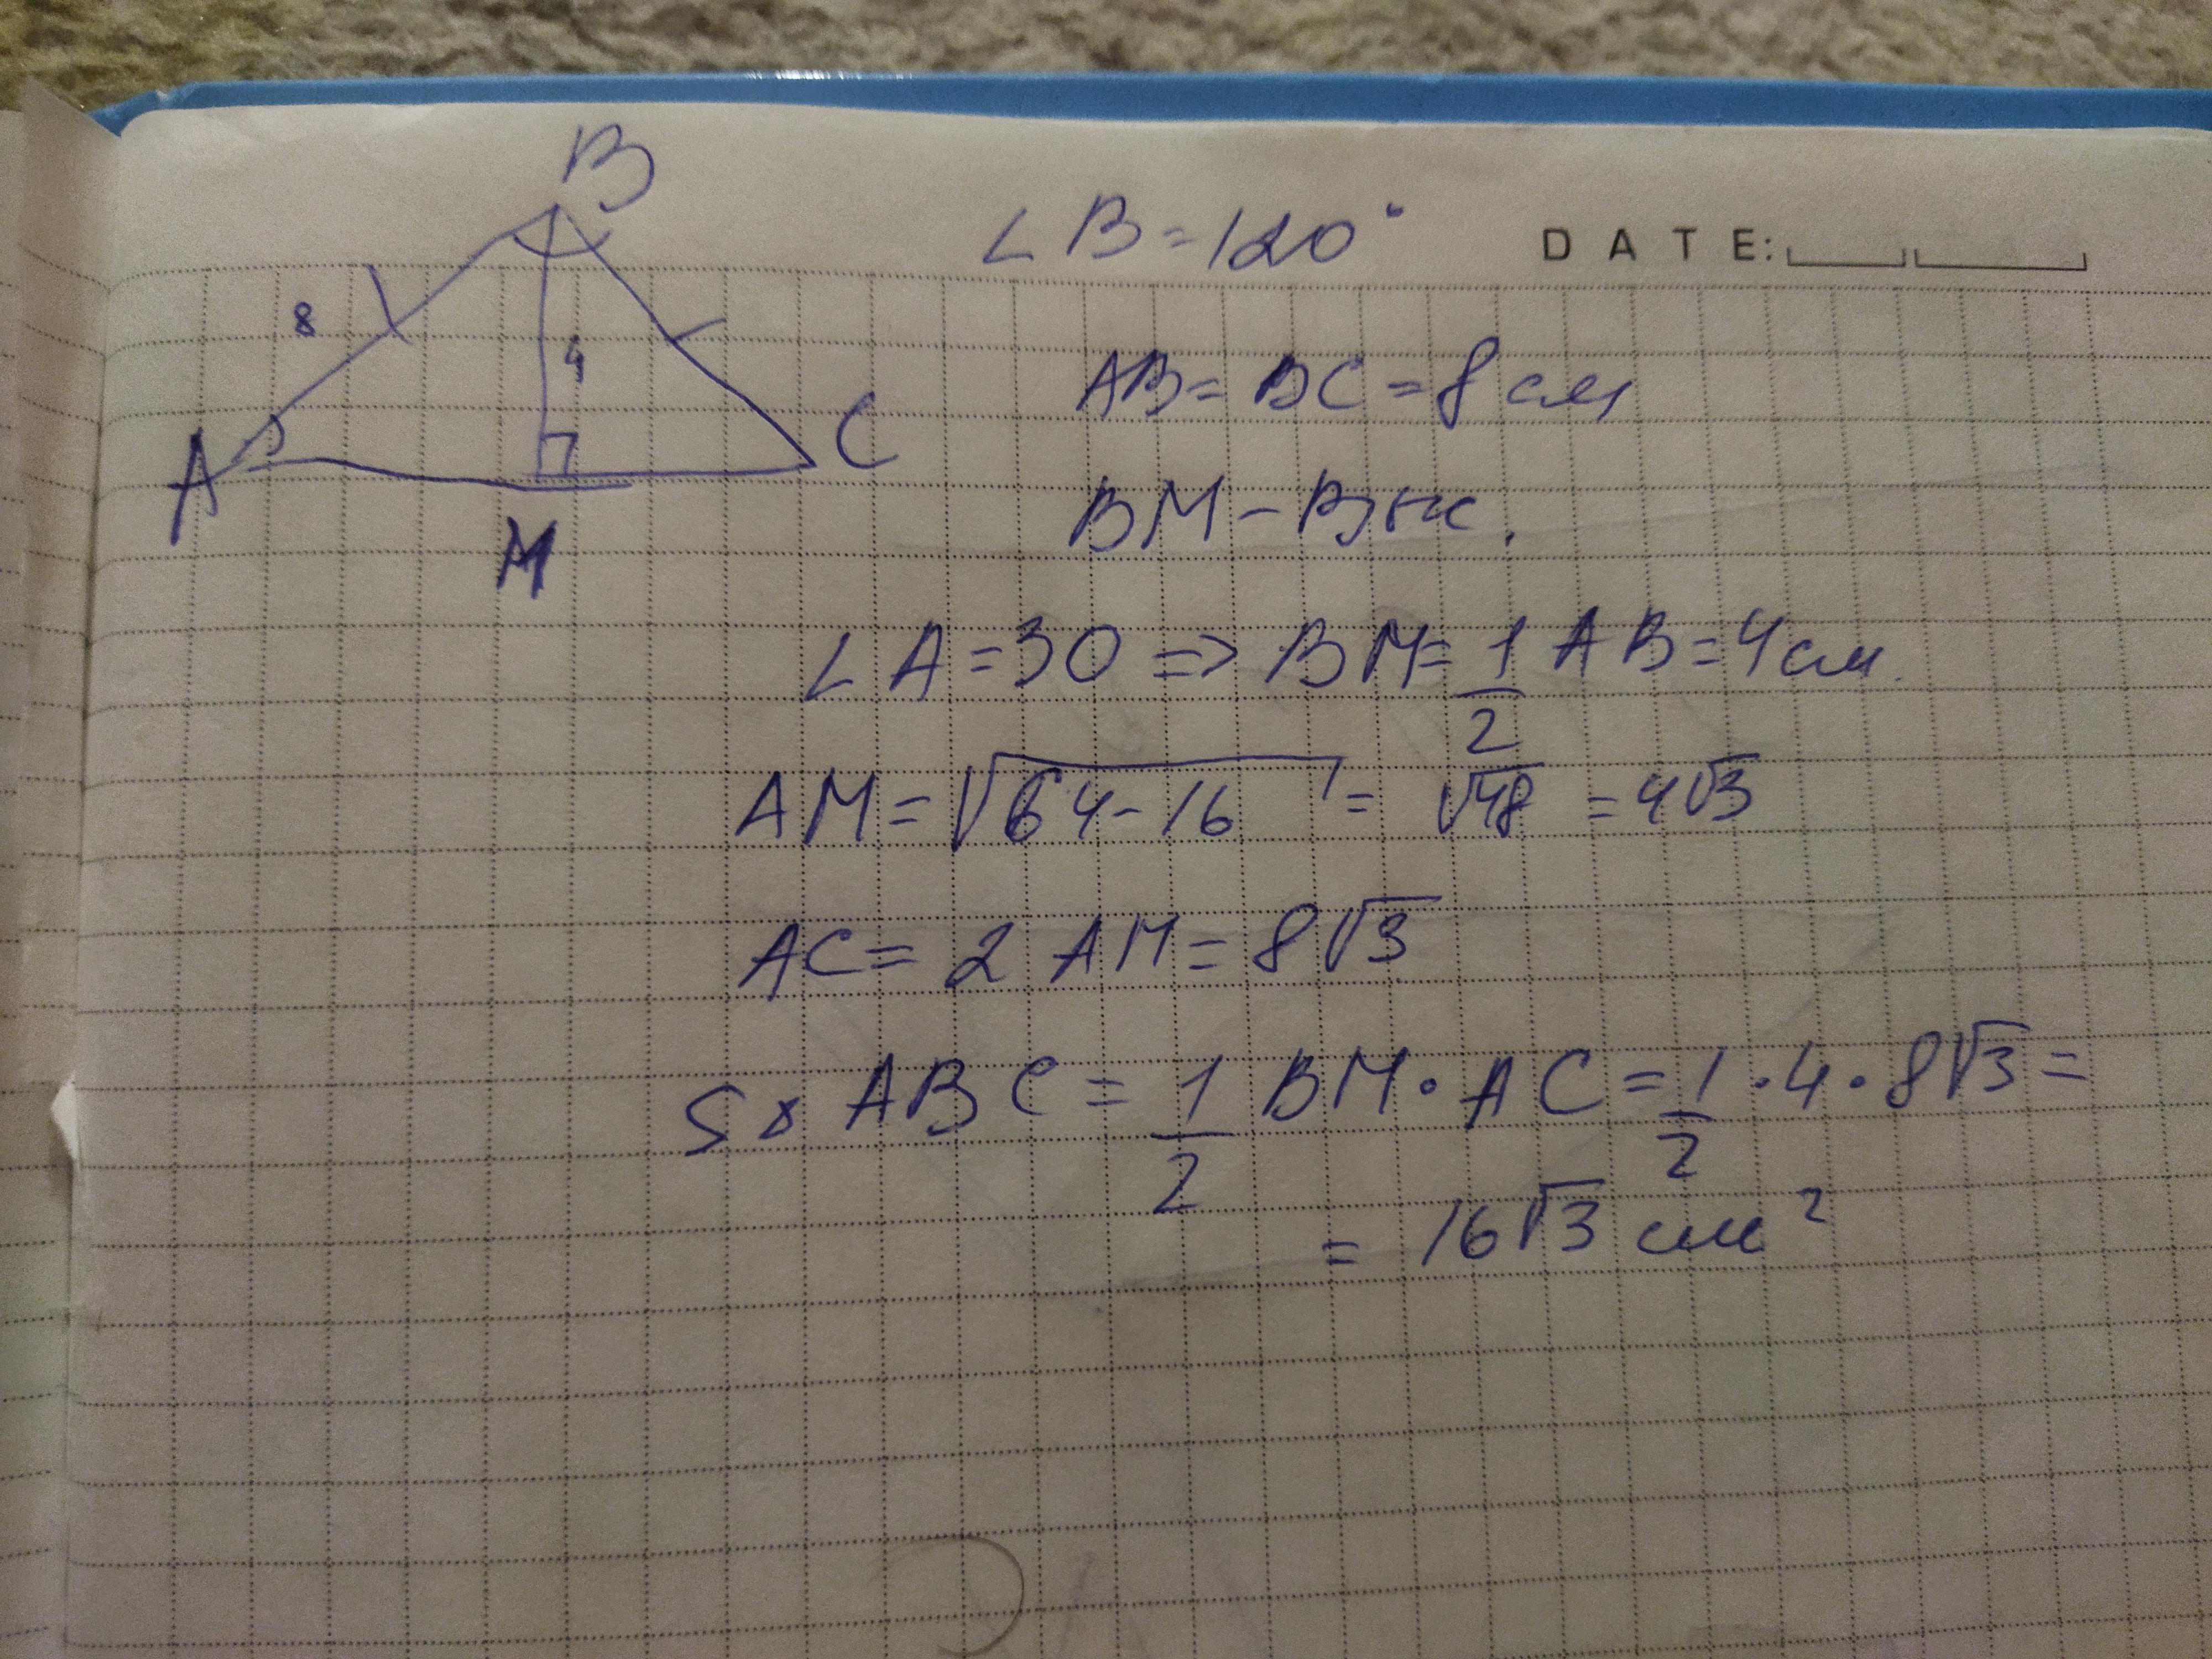 B
∠B=120°
DATE:
8
4
AB=BC=8см
A
C
BM-Выс.
M
∠A=30 => BM=1/2 AB=4см.
AM=√64-16=√48=4√3
AC=2AM=8√3
S△ABC=1/2 BM·AC=1/2·4·8√3=
=16√3см²